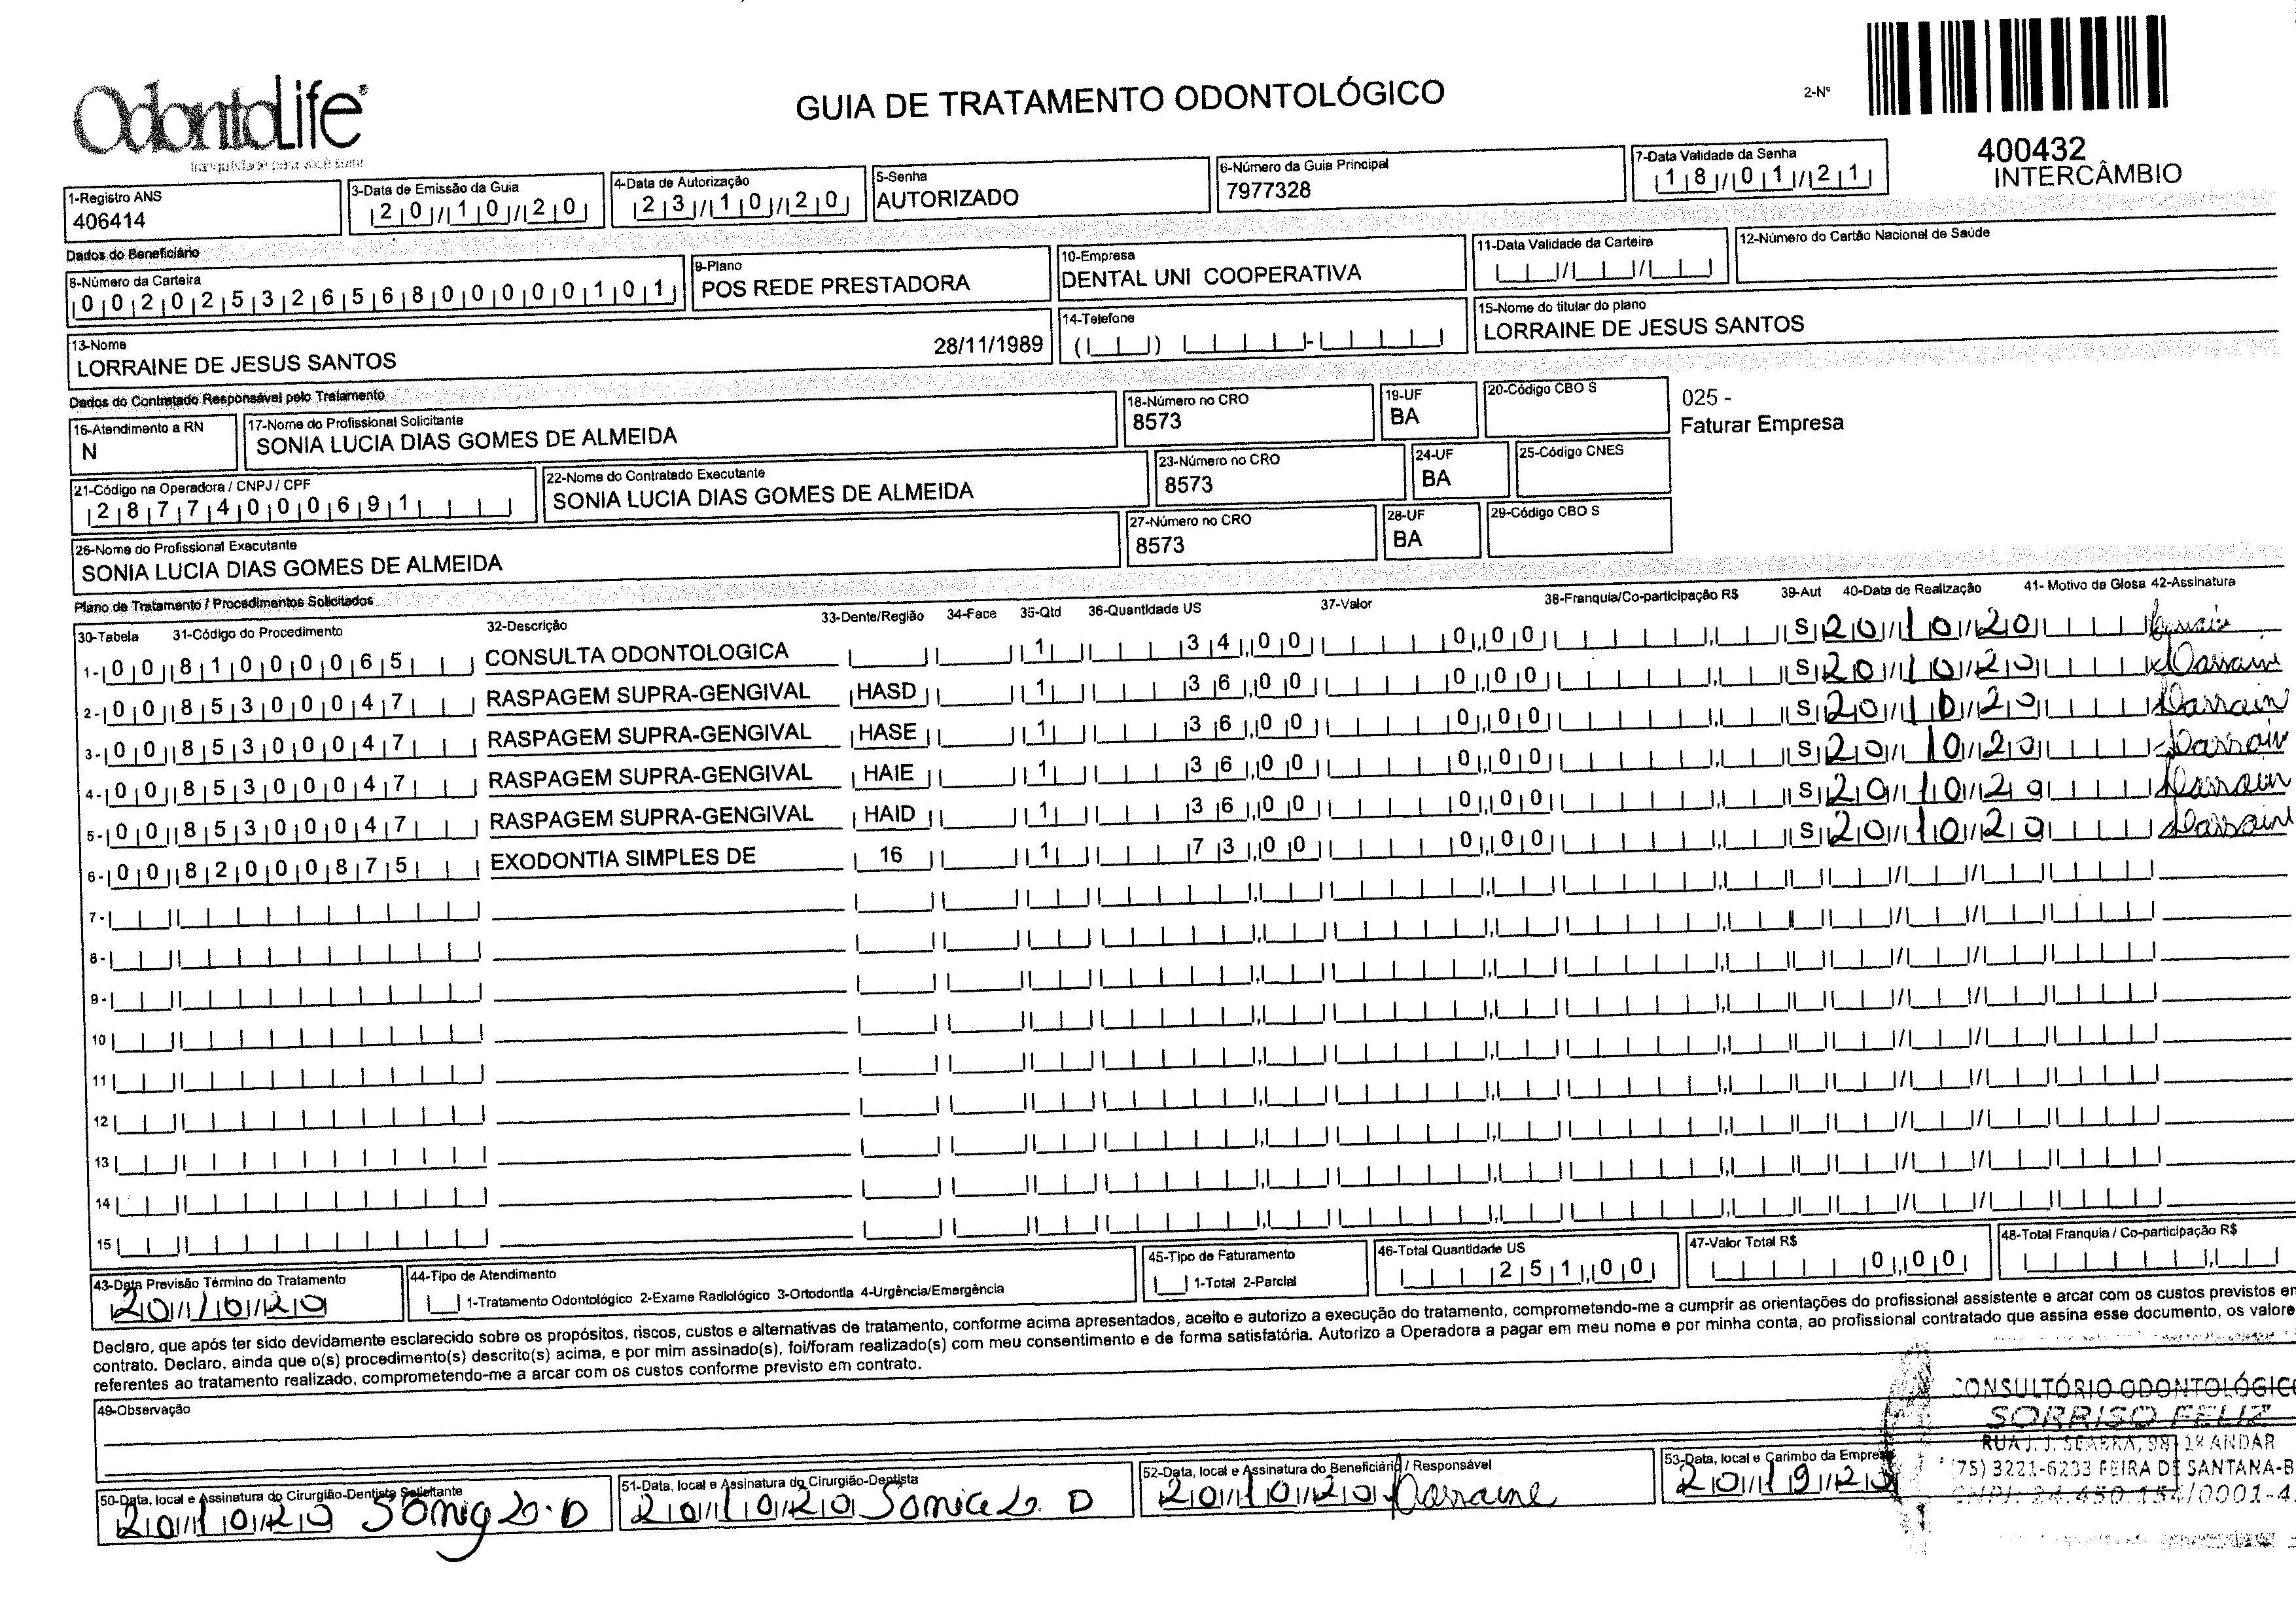 OdontoLife®
tranquilidade para você sorrir
GUIA DE TRATAMENTO ODONTOLÓGICO
2-Nº
400432
INTERCÂMBIO
1-Registro ANS
406414
3-Data de Emissão da Guia
20/10/20
4-Data de Autorização
23/10/20
5-Senha
AUTORIZADO
6-Número da Guia Principal
7977328
7-Data Validade da Senha
18/01/21
Dados do Beneficiário
8-Número da Carteira
00202532656800000101
9-Plano
POS REDE PRESTADORA
10-Empresa
DENTAL UNI COOPERATIVA
11-Data Validade da Carteira
12-Número do Cartão Nacional de Saúde
13-Nome
LORRAINE DE JESUS SANTOS 28/11/1989
14-Telefone
15-Nome do titular do plano
LORRAINE DE JESUS SANTOS
Dados do Contratado Responsável pelo Tratamento
16-Atendimento a RN
N
17-Nome do Profissional Solicitante
SONIA LUCIA DIAS GOMES DE ALMEIDA
18-Número no CRO
8573
19-UF
BA
20-Código CBO S
025 -
Faturar Empresa
21-Código na Operadora / CNPJ / CPF
28774000691
22-Nome do Contratado Executante
SONIA LUCIA DIAS GOMES DE ALMEIDA
23-Número no CRO
8573
24-UF
BA
25-Código CNES
26-Nome do Profissional Executante
SONIA LUCIA DIAS GOMES DE ALMEIDA
27-Número no CRO
8573
28-UF
BA
29-Código CBO S
Plano de Tratamento / Procedimentos Solicitados
30-Tabela 31-Código do Procedimento 32-Descrição 33-Dente/Região 34-Face 35-Qtd 36-Quantidade US 37-Valor 38-Franquia/Co-participação R$ 39-Aut 40-Data de Realização 41- Motivo da Glosa 42-Assinatura
1- 00 81000065 CONSULTA ODONTOLOGICA 1 34,00 0,00 S 20/10/20 Lorraine
2- 00 85300047 RASPAGEM SUPRA-GENGIVAL HASD 1 36,00 0,00 S 20/10/20 Lorraine
3- 00 85300047 RASPAGEM SUPRA-GENGIVAL HASE 1 36,00 0,00 S 20/10/20 Lorraine
4- 00 85300047 RASPAGEM SUPRA-GENGIVAL HAIE 1 36,00 0,00 S 20/10/20 Lorraine
5- 00 85300047 RASPAGEM SUPRA-GENGIVAL HAID 1 36,00 0,00 S 20/10/20 Lorraine
6- 00 82000875 EXODONTIA SIMPLES DE 16 1 73,00 0,00 S 20/10/20 Lorraine
7-
8-
9-
10
11
12
13
14
15
43-Data Previsão Término do Tratamento
20/10/20
44-Tipo de Atendimento
1-Tratamento Odontológico 2-Exame Radiológico 3-Ortodontia 4-Urgência/Emergência
45-Tipo de Faturamento
1-Total 2-Parcial
46-Total Quantidade US
251,00
47-Valor Total R$
0,00
48-Total Franquia / Co-participação R$
Declaro, que após ter sido devidamente esclarecido sobre os propósitos, riscos, custos e alternativas de tratamento, conforme acima apresentados, aceito e autorizo a execução do tratamento, comprometendo-me a cumprir as orientações do profissional assistente e arcar com os custos previstos em
contrato. Declaro, ainda que o(s) procedimento(s) descrito(s) acima, e por mim assinado(s), foi/foram realizado(s) com meu consentimento e de forma satisfatória. Autorizo a Operadora a pagar em meu nome e por minha conta, ao profissional contratado que assina esse documento, os valore
referentes ao tratamento realizado, comprometendo-me a arcar com os custos conforme previsto em contrato.
49-Observação
CONSULTÓRIO ODONTOLÓGICO
SORRISO FELIZ
RUA J. J. SEABRA, 98 1º ANDAR
(75) 3221-6233 FEIRA DE SANTANA-B
CNPJ: 24.450.154/0001-4
50-Data, local e Assinatura do Cirurgião-Dentista Solicitante
20/10/20 Sonia L. D
51-Data, local e Assinatura do Cirurgião-Dentista
20/10/20 Sonia L. D
52-Data, local e Assinatura do Beneficiário / Responsável
20/10/20 Lorraine
53-Data, local e Carimbo da Empresa
20/10/20